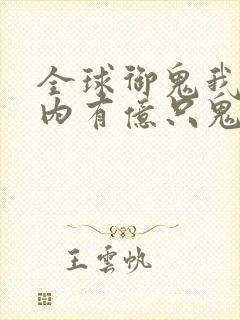 全球御鬼我
内有億只鬼
王雲帆